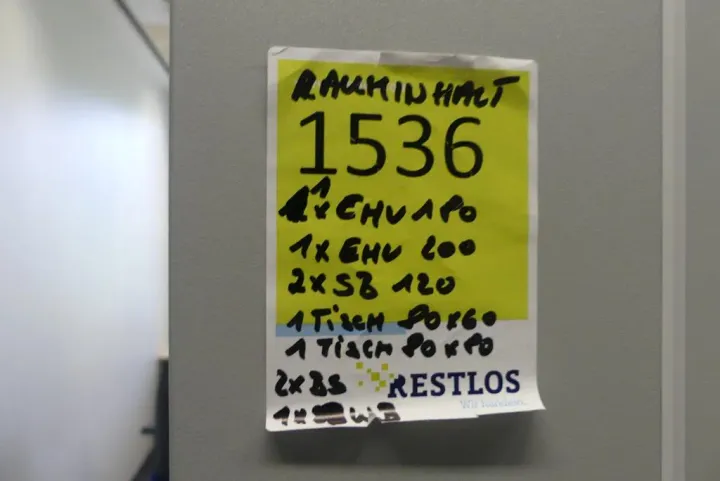 RAUMINHALT
1536
1x EHV 180
1x EHV 200
2x SB 120
1 Tisch 80x60
1 Tisch 80x80
2x BS
RESTLOS
1x WB